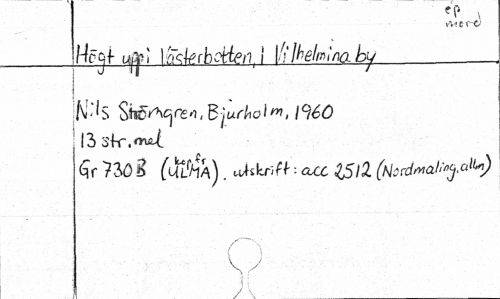 ep
mord
Högt uppi Västerbotten, i Vilhelmina by
Nils Strömgren, Bjurholm, 1960
13 str. mel
kop fr
Gr 730 B (ULMA). utskrift: acc 2512 (Nordmaling. allm)